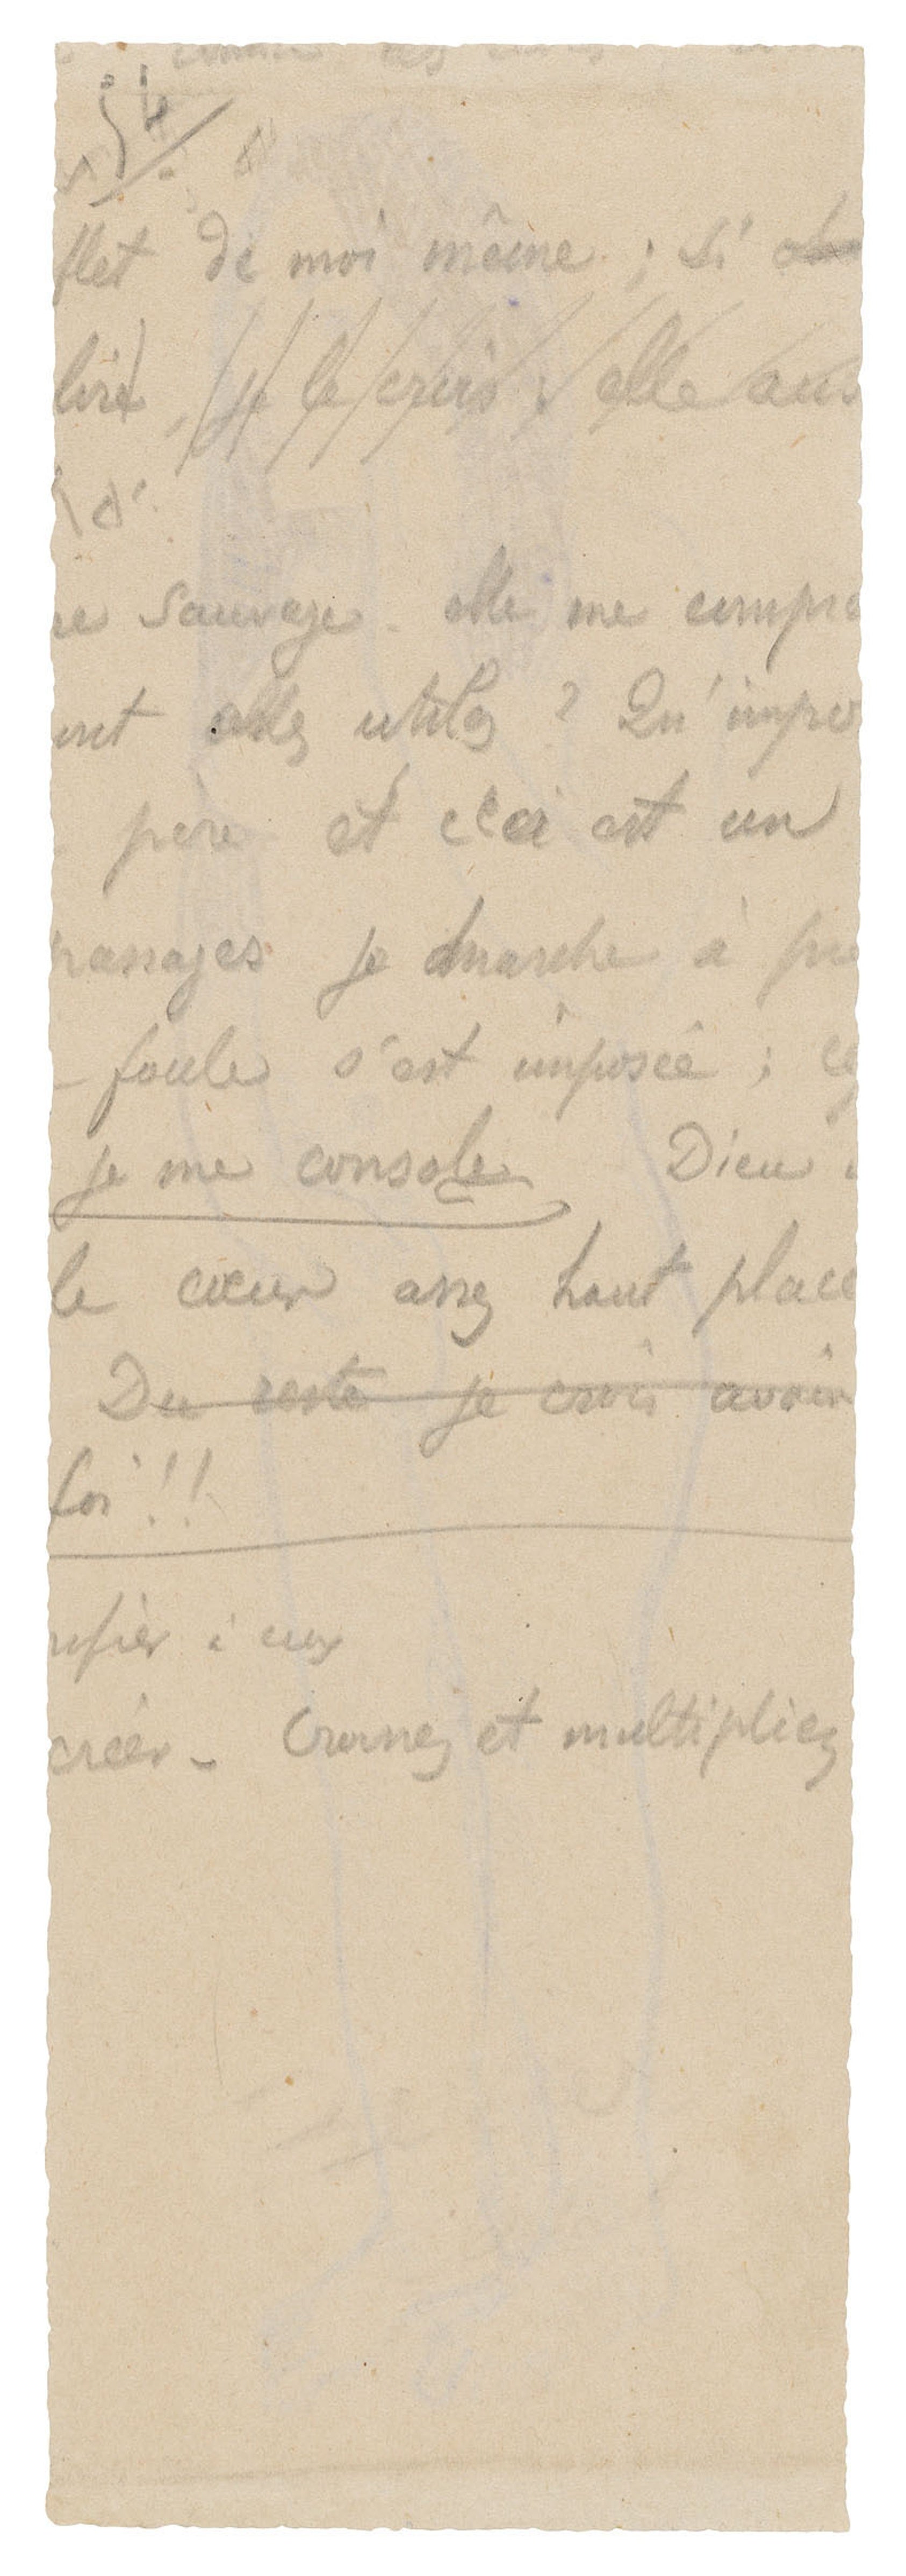 flet de moi même ; si
liré, je le crois ; elle aus
re sauvage. elle me compre
ont elles utiles ? Qu'impor
père et ceci est un
passages je marche à
foule s'est imposée ;
je me console Dieu
le cœur assez haut place
Du reste je crois avoir
foi !!
à eux
créer - Croissez et multipliez